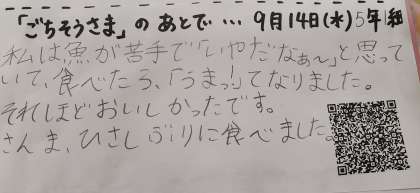 「ごちそうさま」の あとで… 9月14日(水)5年1組
私は魚が苦手で「いやだなぁ〜」と思って
いて、食べたら、「うまっ!」てなりました。
それほどおいしかったです。
さんま、ひさしぶりに食べました。